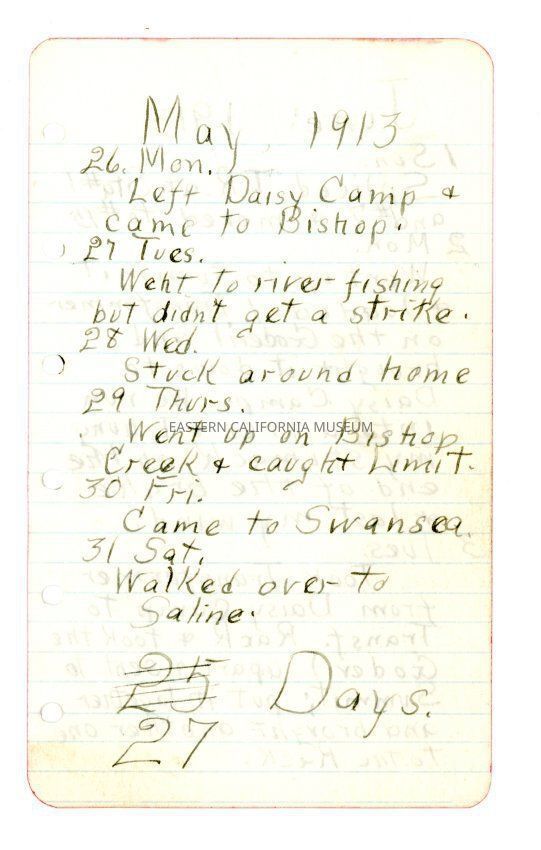 May 1913
26. Mon.
Left Daisy Camp &
came to Bishop.
27 Tues.
Went to river fishing
but didn't get a strike.
28 Wed.
Stuck around home
29 Thurs.
EASTERN CALIFORNIA MUSEUM
Went up on Bishop
Creek & caught Limit.
30 Fri.
Came to Swansea.
31 Sat.
Walked over to
Saline.
25 Days.
27